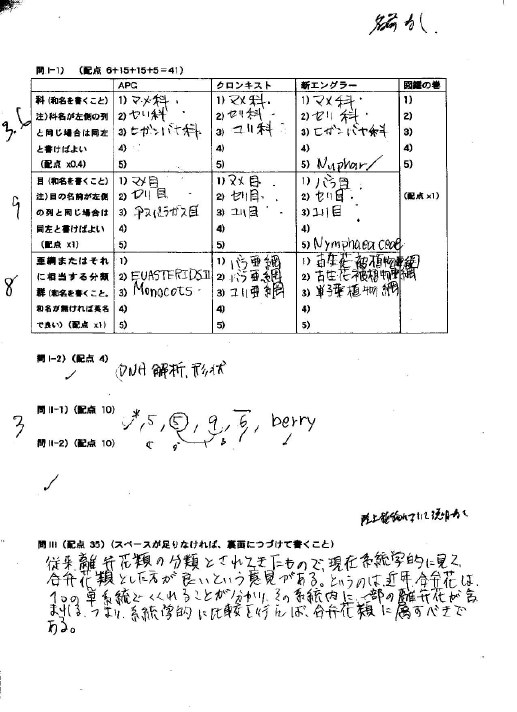 名前なし.
問I-1) (配点 6+15+15+5=41)
APG クロンキスト 新エングラー 図鑑の巻
科(和名を書くこと) 1) マメ科. 1) マメ科. 1) マメ科. 1)
注)科名が左側の列 2) セリ科. 2) セリ科. 2) セリ科. 2)
と同じ場合は同左 3) ヒガンバナ科 3) ユリ科. 3) ヒガンバナ科 3)
と書けばよい 4) 4) 4) 4)
(配点 x0.4) 5) 5) 5) Nuphar 5)
3.6
目(和名を書くこと) 1) マメ目 1) マメ目. 1) バラ目
注)目の名前が左側 2) セリ目 2) セリ目. 2) セリ目. (配点 x1)
の列と同じ場合は 3) アスパラガス目 3) ユリ目 3) ユリ目
同左と書けばよい 4) 4) 4)
(配点 x1) 5) 5) 5) Nymphaeaceae
9
亜綱またはそれ 1) 1) バラ亜綱 1) 古生花被植物亜綱
に相当する分類 2) EUASTERIDS II 2) バラ亜綱 2) 古生花被植物亜綱
群(和名を書くこと。 3) Monocots 3) ユリ亜綱 3) 単子葉植物綱
和名が無ければ英名 4) 4) 4)
で良い) (配点 x1) 5) 5) 5)
8
問I-2) (配点 4)
DNA 解析, 形状
問II-1) (配点 10)
3
*, 5, 5, 9, 6, berry
問II-2) (配点 10)
問III (配点 35) (スペースが足りなければ、裏面につづけて書くこと)
従来離弁花類の分類とされてきたもので、現在系統学的に見て、
合弁花類とした方が良いという意見がある。というのは、近年、合弁花は、
1つの単系統でくくれることが分かり、その系統内に、一部の離弁花が含
まれる。つまり、系統学的に比較を行えば、合弁花類に属すべきで
ある。